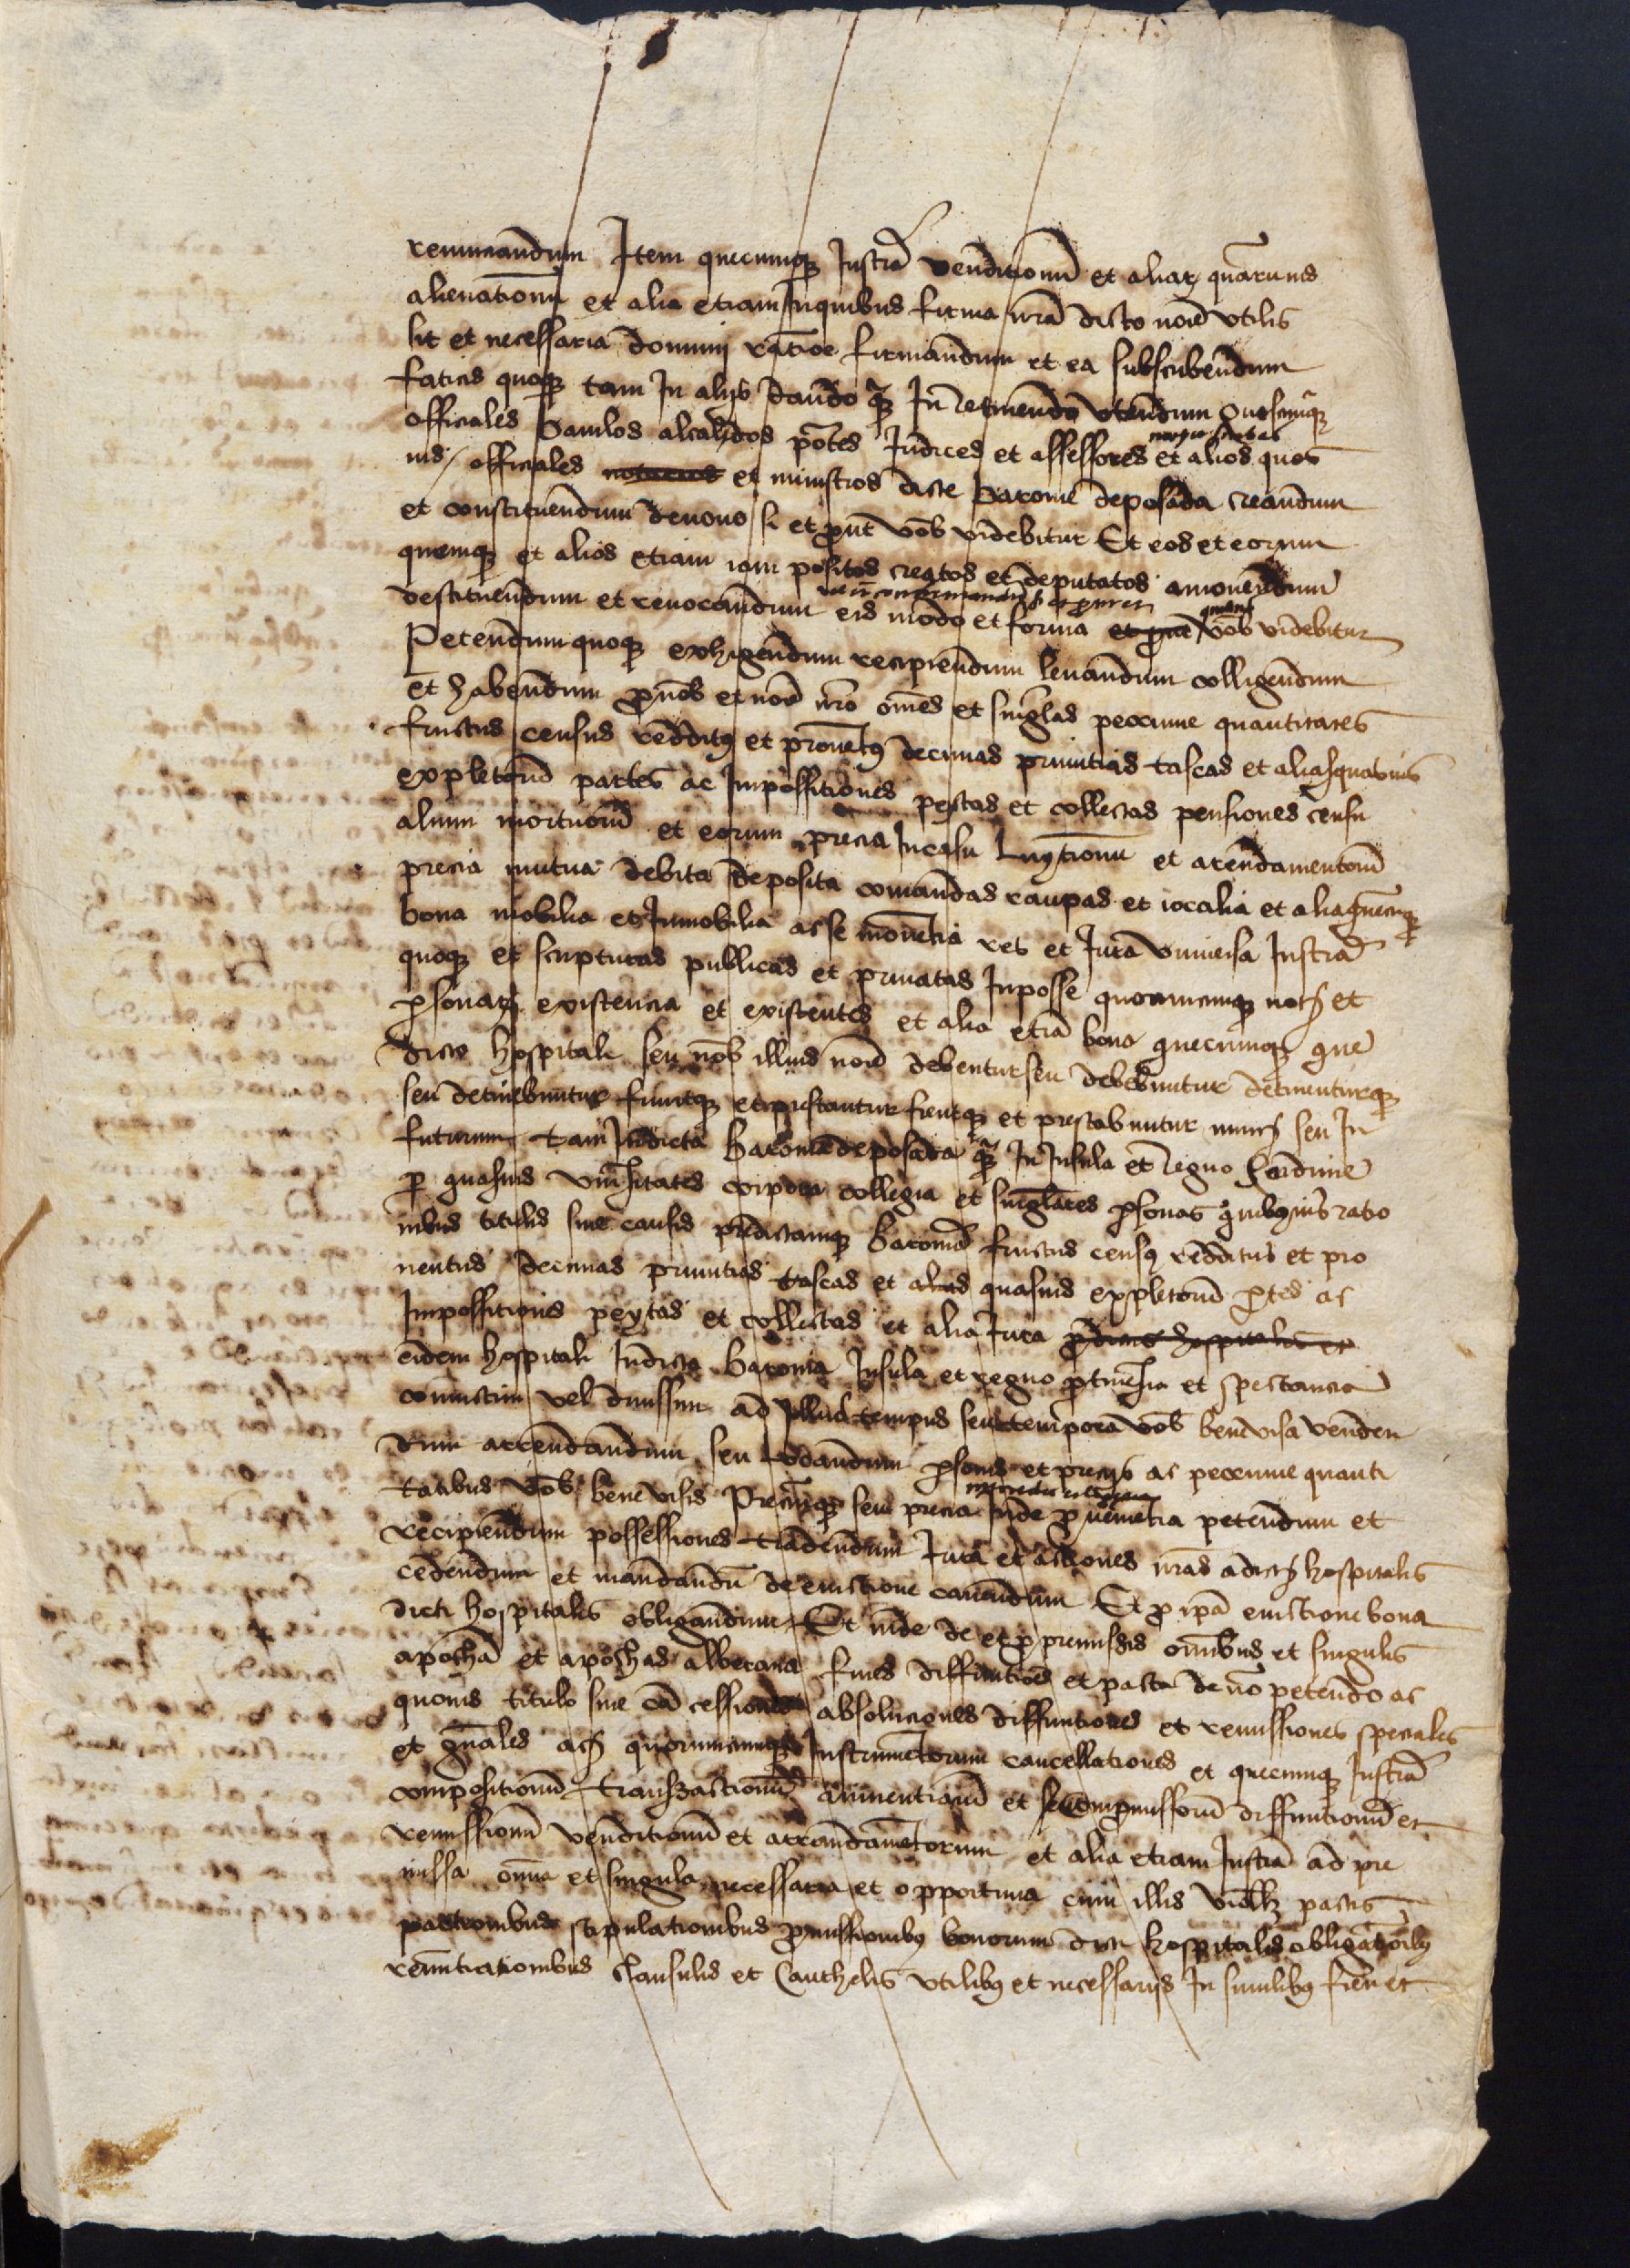 renunciandum Item quecumque Instra venditionum et aliar quarumvis
alienationum et alia etiam In quibus firma nra dicto noie utilis
sit et necessaria dominij ratioe firmandum et ea subscribendum
faticis quoque tam In alijs dando quam In retinendo utendum Quoscumque
officiales baiulos alcaydos potes Judices et assessores et alios quos
vis officiales notarios et ministros dicte baronie de posada creandum
et constituendum de novo si et prout vob videbitur Et eos et eorum
quemque et alios etiam iam positos creatos et deputatos amovendum
destituendum et revocandum eis modo et forma et prout quibus vob videbitur
Petendum quoque exhigendum recipiendum levandum colligendum
et habendum pro nob et noie nro omes et singlas peccunie quantitates
fructus census redditus et proventus decimas primitias tascas et alias quasvis
expletorum partes ac Impossitiones peytas et collectas pensiones censu
alium mortuorum et eorum precia In casu luytionum et arendamentorum
precia mutua debita deposita comandas raupas et iocalia et alia quecumque
bona mobilia et Inmobilia ac se moventia res et Jura universa Instra
quoque et scripturas publicas et privatas In posse quorumcumque not et
psonar existencia et existentes et alia etia bona quecumque que
dicto hospitali seu nob illius noie debentur seu debebuntur detinenturque
seu detinebuntur fiuntque et prestantur fientque et prestabuntur nunc seu In
futurum tam In dicta baronia de posada quam In Insula et regno Sardinie
p quasvis universitates corpora collegia et singlares psonas quibusvis ratio
nibus titulis sive causis predictamque baroniam fructus census redditus et pro
ventus decimas primitias tascas et alias quasvis expletorum ptes ac
Impossitiones peytas et collectas et alia Jura predictis hospitalis et
eidem hospitali In dicta baronia Insula et regno ptinencia et spectancia
coniunctim vel divissim ad Illud tempus seu tempora vob bene visa venden
dum arrendandum seu locandum psonis et precijs ac peccunie quanti
tatibus vob bene visis Preciumque seu precia Inde provenientia petendum et
recipiendum possessiones tradendum Jura et actiones nras ac dict hospitalis
cedendum et mandandu de evictione cavendum Et pro ipa evictione bona
dicti hospitalis obligandum Et inde de et pro premissis omibus et singulis
apocha et apochas albarana fines diffinitioes et pacta de no petendo ac
quovis titulo sive ca cessiones absoluciones diffinitiones et remissiones speciales
et gnales ac quorumcumque Instrumentorum cancellationes et quecumque Instra
compositionum transactionum avinentiarum et se compromissorum diffinitionum et
remissionu venditionum et arrendamentorum et alia etiam Instra ad pre
missa omnia et singula necessaria et opportuna cum illis videlz pactis
pactionibus stipulationibus promissionibus bonorum dicti hospitalis obligationibus
renuntiationibus clausulis et cauthelis utilibus et necessarijs In similibus fieri et